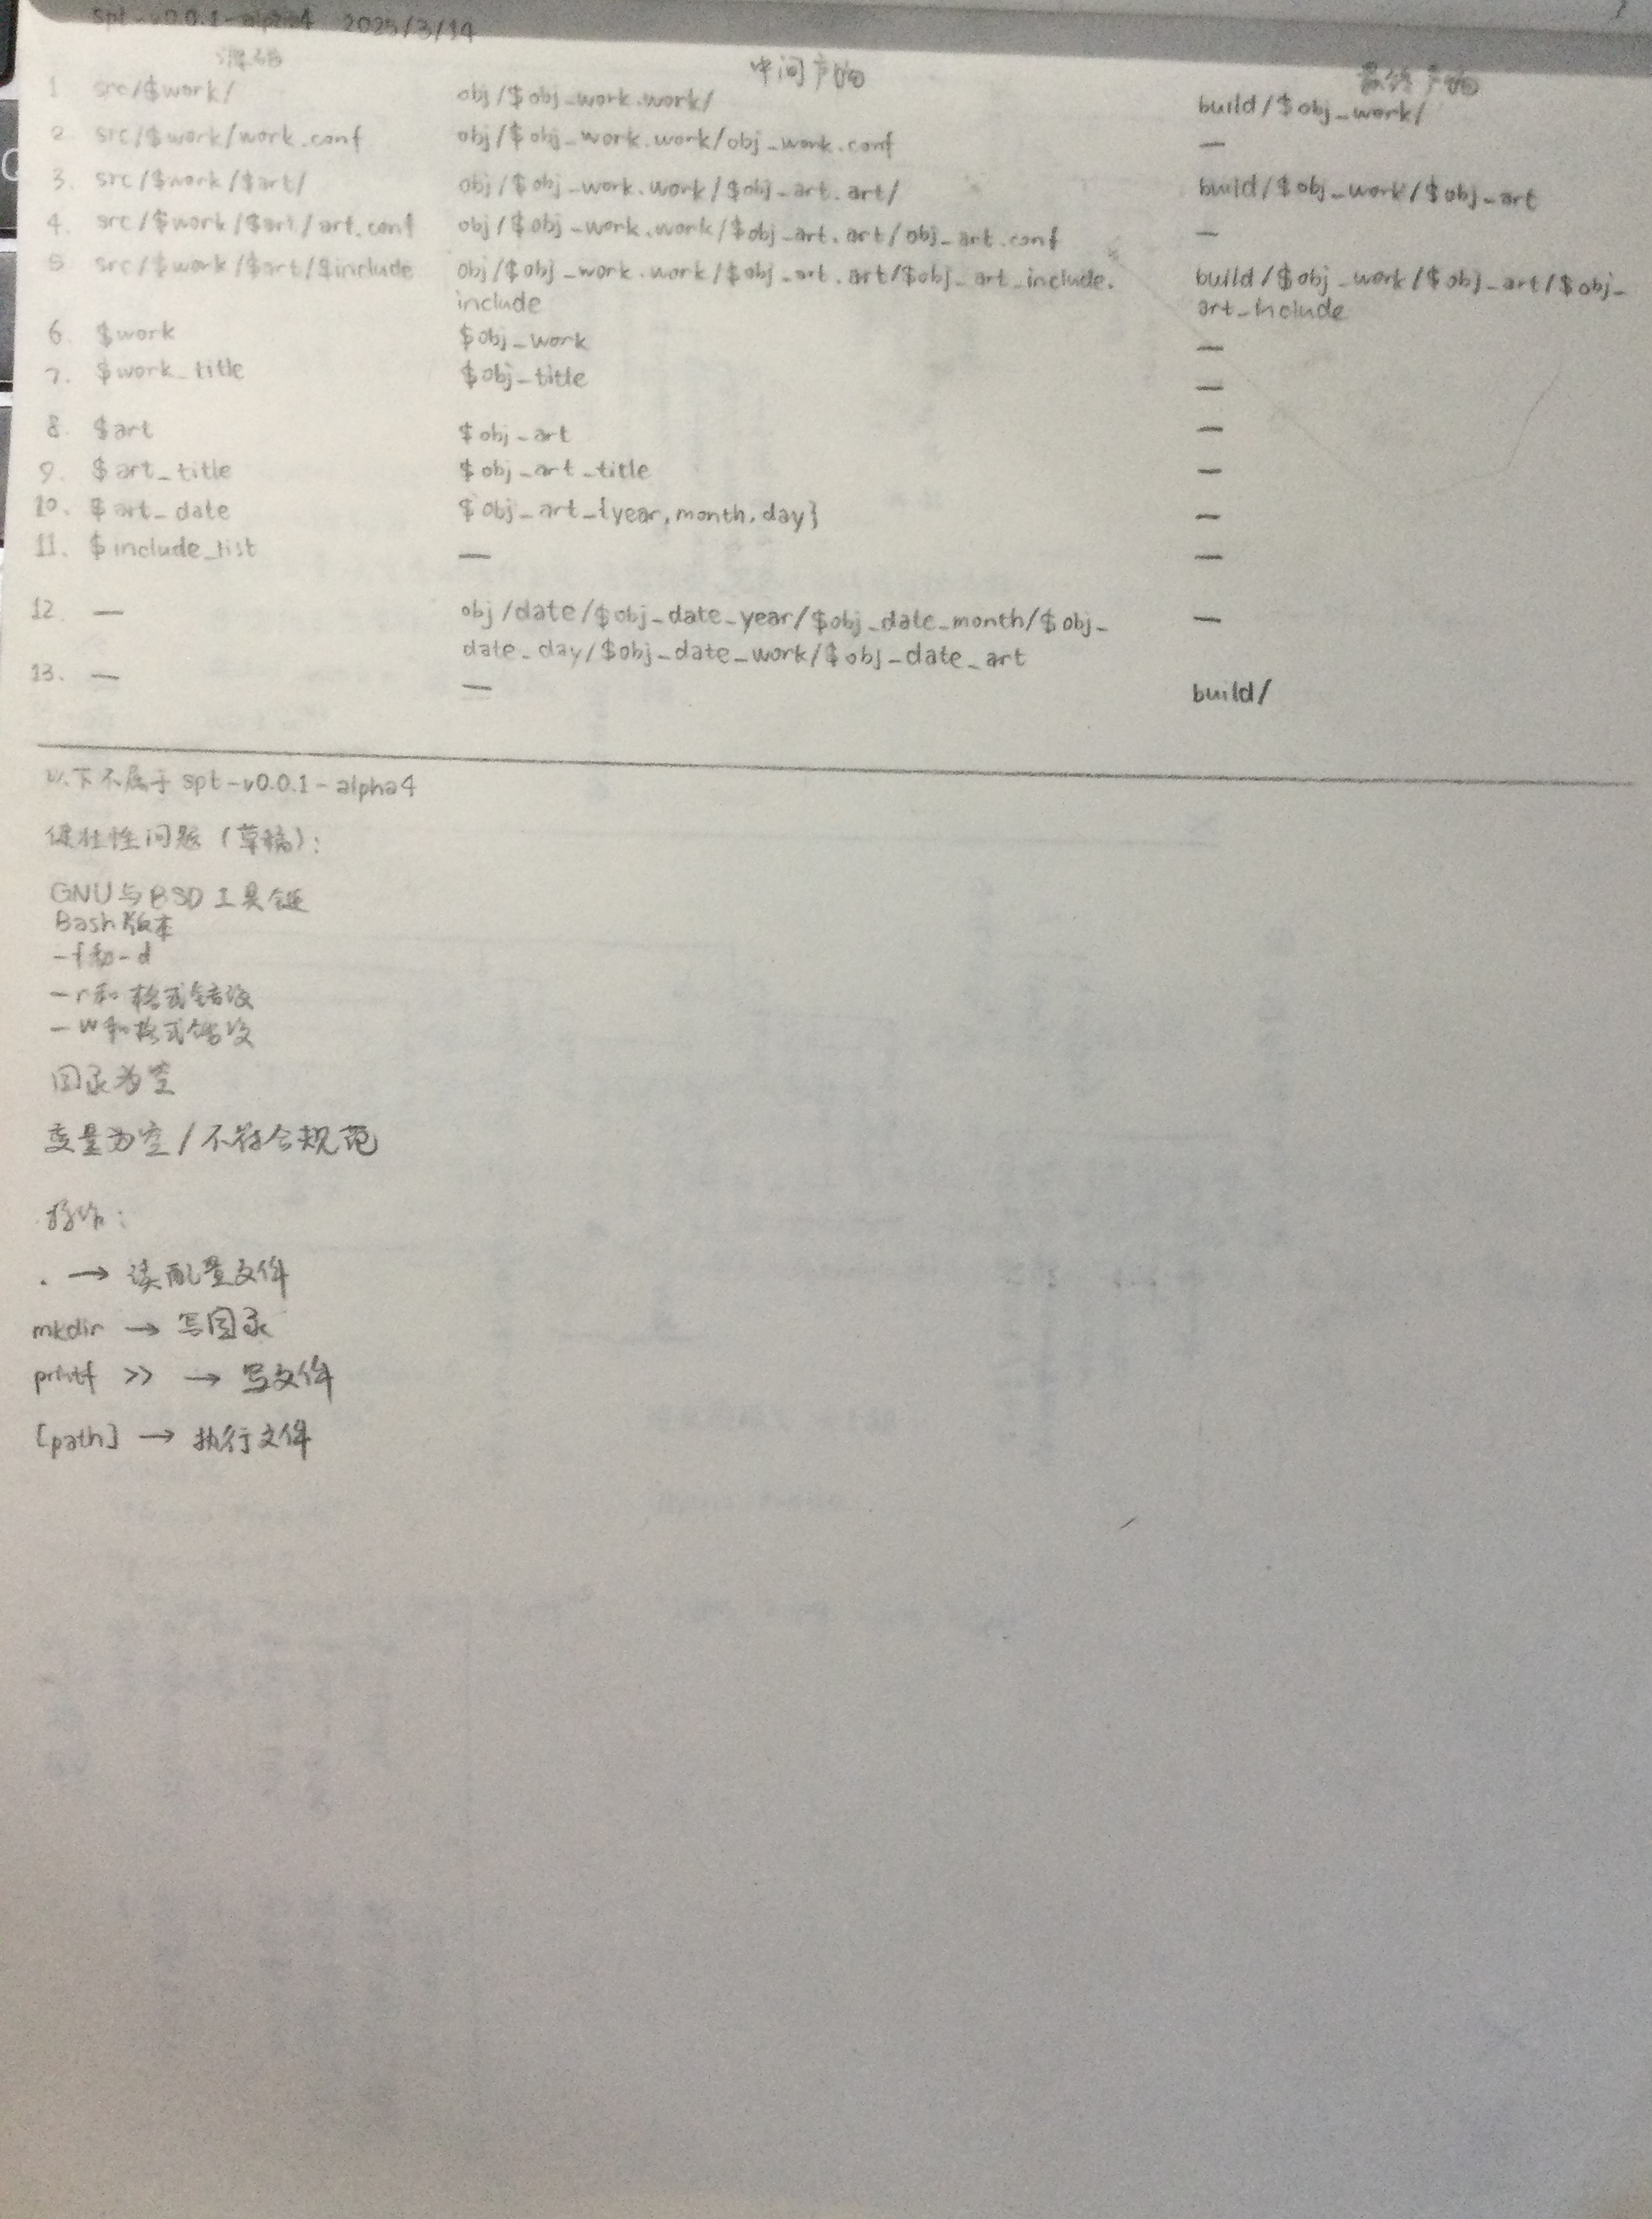 spt-v0.0.1-alpha4 2025/3/14
源码 中间产物 最终产物
1 src/$work/ obj/$obj_work.work/ build/$obj_work/
2. src/$work/work.conf obj/$obj_work.work/obj_work.conf —
3. src/$work/$art/ obj/$obj_work.work/$obj_art.art/ build/$obj_work/$obj_art
4. src/$work/$art/art.conf obj/$obj_work.work/$obj_art.art/obj_art.conf —
5 src/$work/$art/$include obj/$obj_work.work/$obj_art.art/$obj_art_include. build/$obj_work/$obj_art/$obj_
include art_include
6. $work $obj_work —
7. $work_title $obj_title —
8. $art $obj_art —
9. $art_title $obj_art_title —
10. $art_date $obj_art_{year,month,day} —
11. $include_list — —
12. — obj/date/$obj_date_year/$obj_date_month/$obj_ —
date_day/$obj_date_work/$obj_date_art
13. — — build/
以下不属于 spt-v0.0.1-alpha4
健壮性问题（草稿）：
GNU与BSD工具链
Bash版本
-f和-d
-r和格式错误
-w和格式错误
目录为空
变量为空/不符合规范
操作：
. → 读配置文件
mkdir → 写目录
printf >> → 写文件
[path] → 执行文件